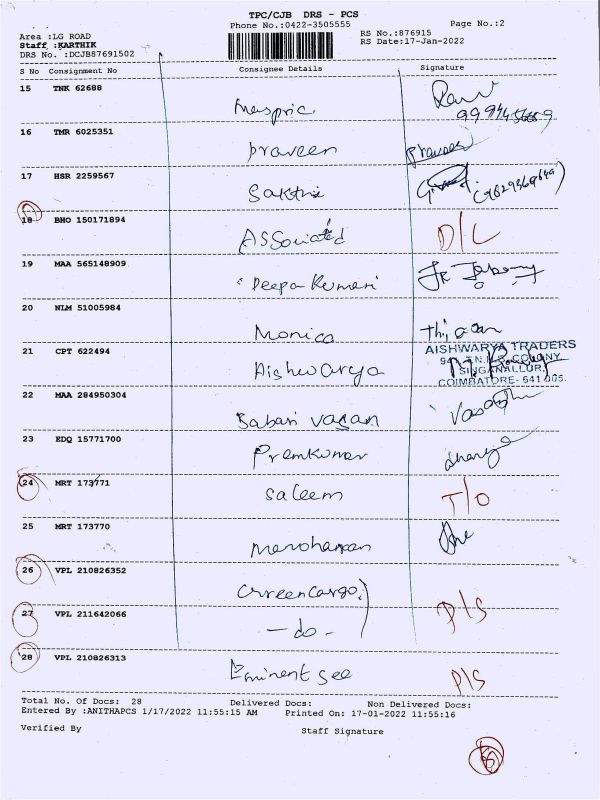 TPC/CJB DRS - PCS
Phone No.:0422-3505555
Page No.:2
Area :LG ROAD
RS No.:876915
Staff :KARTHIK
RS Date:17-Jan-2022
DRS No. :DCJB87691502
S No Consignment No Consignee Details Signature
15 TNK 62688
16 TMR 6025351
praveen
Praveen
17 HSR 2259567
Sakthi
18 BHO 150171894
Associated D/L
19 MAA 565148909
Deepa Kumari
20 NLM 51005984
Monica
21 CPT 622494
Aishwarya
AISHWARYA TRADERS
COLONY
SINGANALLUR,
COIMBATORE- 641 005.
22 MAA 284950304
23 EDQ 15771700
Premkumar
24 MRT 173771
Saleem T/O
25 MRT 173770
26 VPL 210826352
Green Cargo
27 VPL 211642066
- do - P/S
28 VPL 210826313
Eminent See P/S
Total No. Of Docs: 28 Delivered Docs: Non Delivered Docs:
Entered By :ANITHAPCS 1/17/2022 11:55:15 AM Printed On: 17-01-2022 11:55:16
Verified By Staff Signature